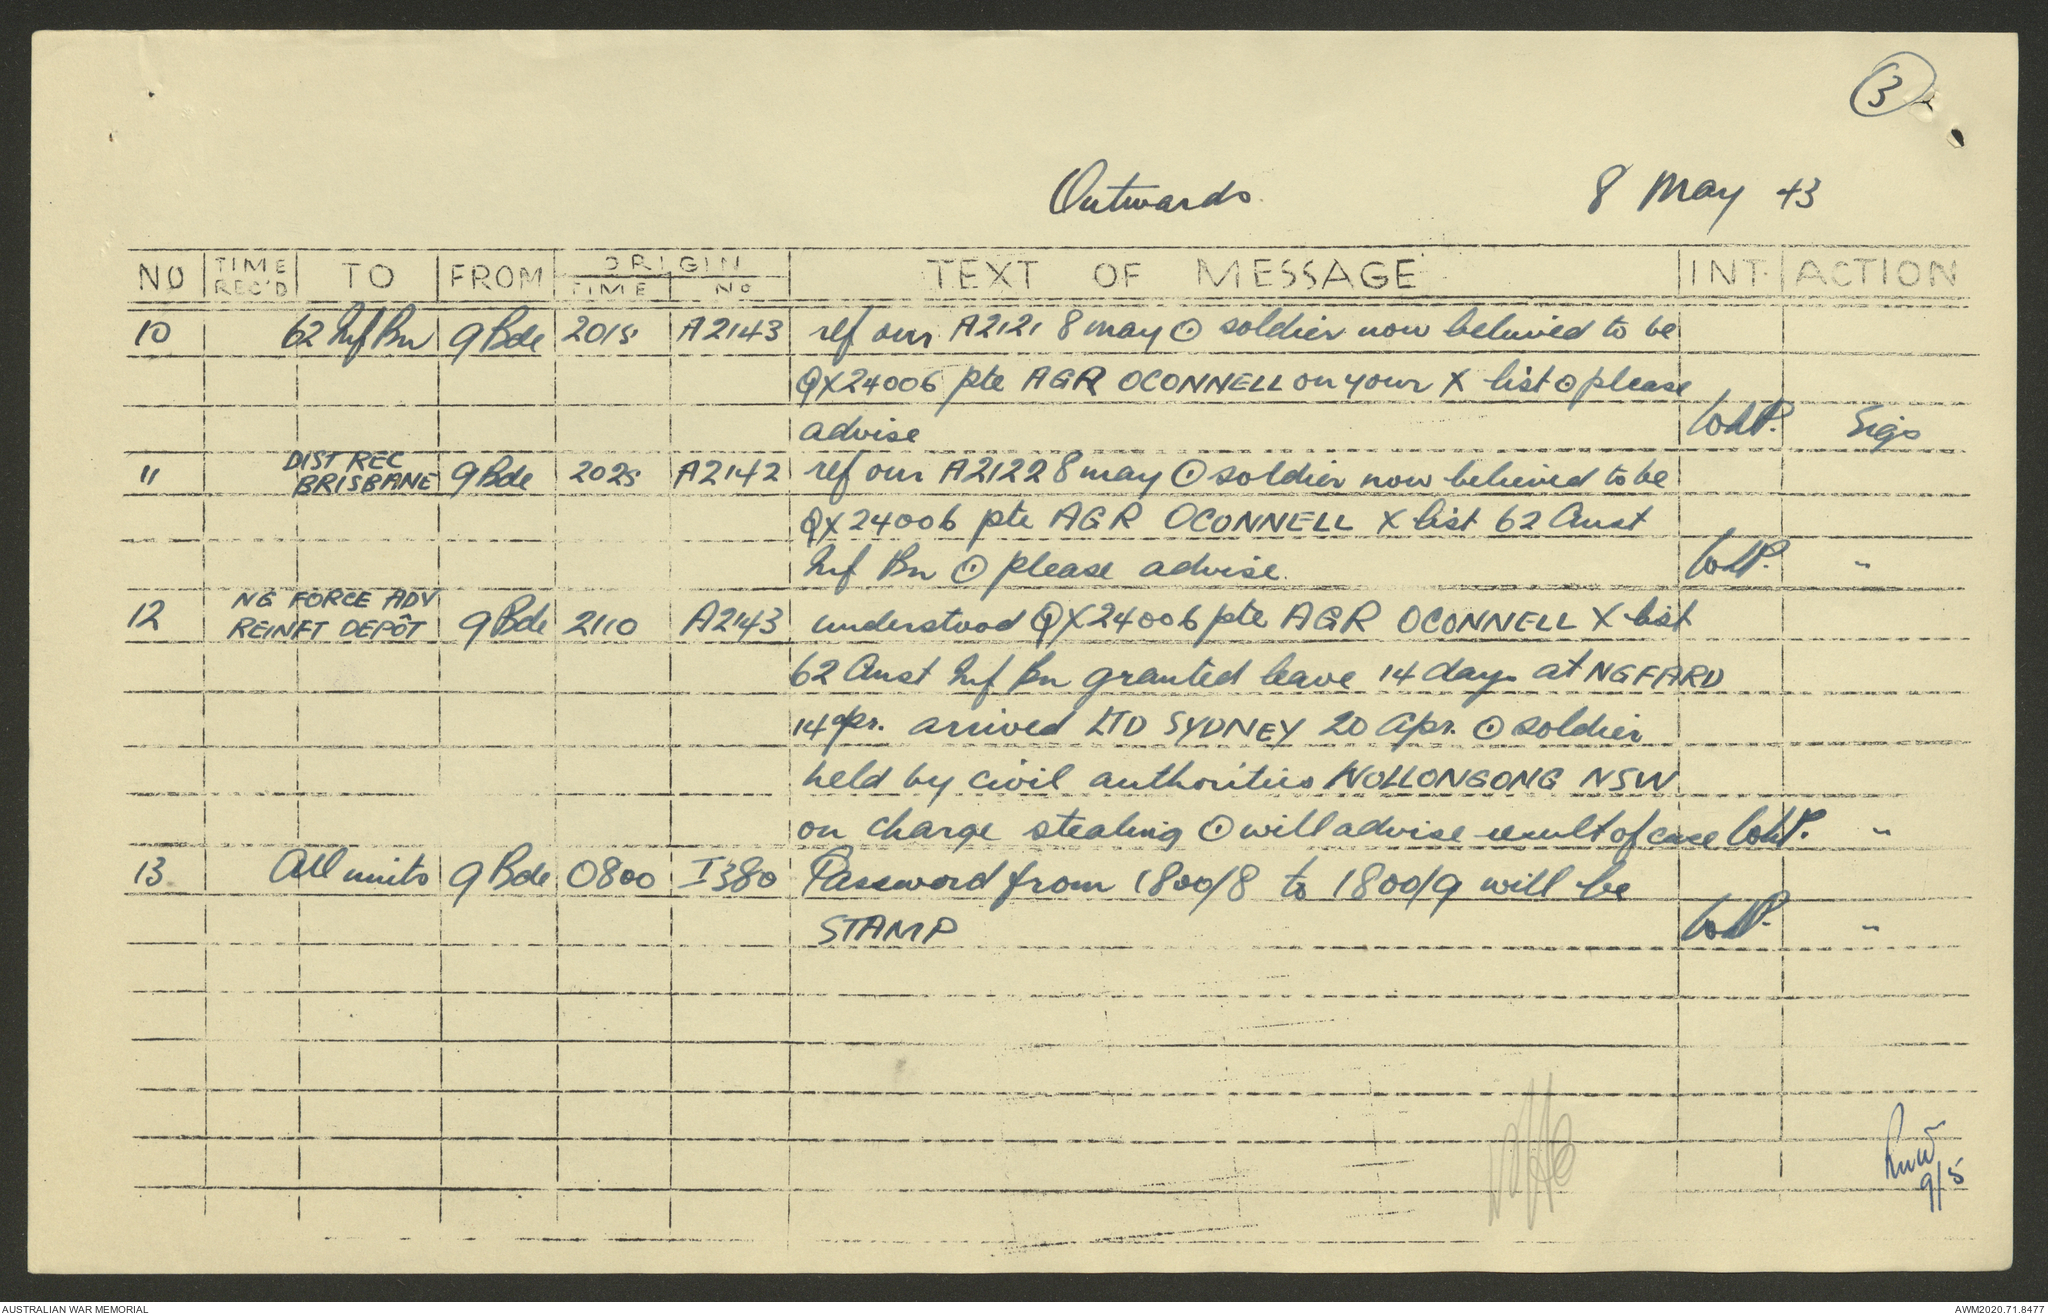 3
Outwards
8 May 43
NO TIME REC'D TO FROM ORIGIN TIME No TEXT OF MESSAGE INT. ACTION
10 62 Inf Bn 9 Bde 2015 A2143 ref our A2121 8 may ⊙ soldier now believed to be
QX24006 pte AGR OCONNELL on your X list ⊙ please
advise Sigs
11 DIST REC BRISBANE 9 Bde 2025 A2142 ref our A2122 8 may ⊙ soldier now believed to be
QX24006 pte AGR OCONNELL X list 62 Aust
Inf Bn ⊙ please advise. "
12 NG FORCE ADV REINFT DEPÔT 9 Bde 2110 A2143 understood QX24006 pte AGR OCONNELL X list
62 Aust Inf Bn granted leave 14 days at NGFARD
14 apr. arrived LTD SYDNEY 20 apr. ⊙ soldier
held by civil authorities WOLLONGONG NSW
on charge stealing ⊙ will advise result of case "
13 All units 9 Bde 0800 I380 Password from 1800/8 to 1800/9 will be
STAMP "
9/5
AUSTRALIAN WAR MEMORIAL
AWM2020.71.8477